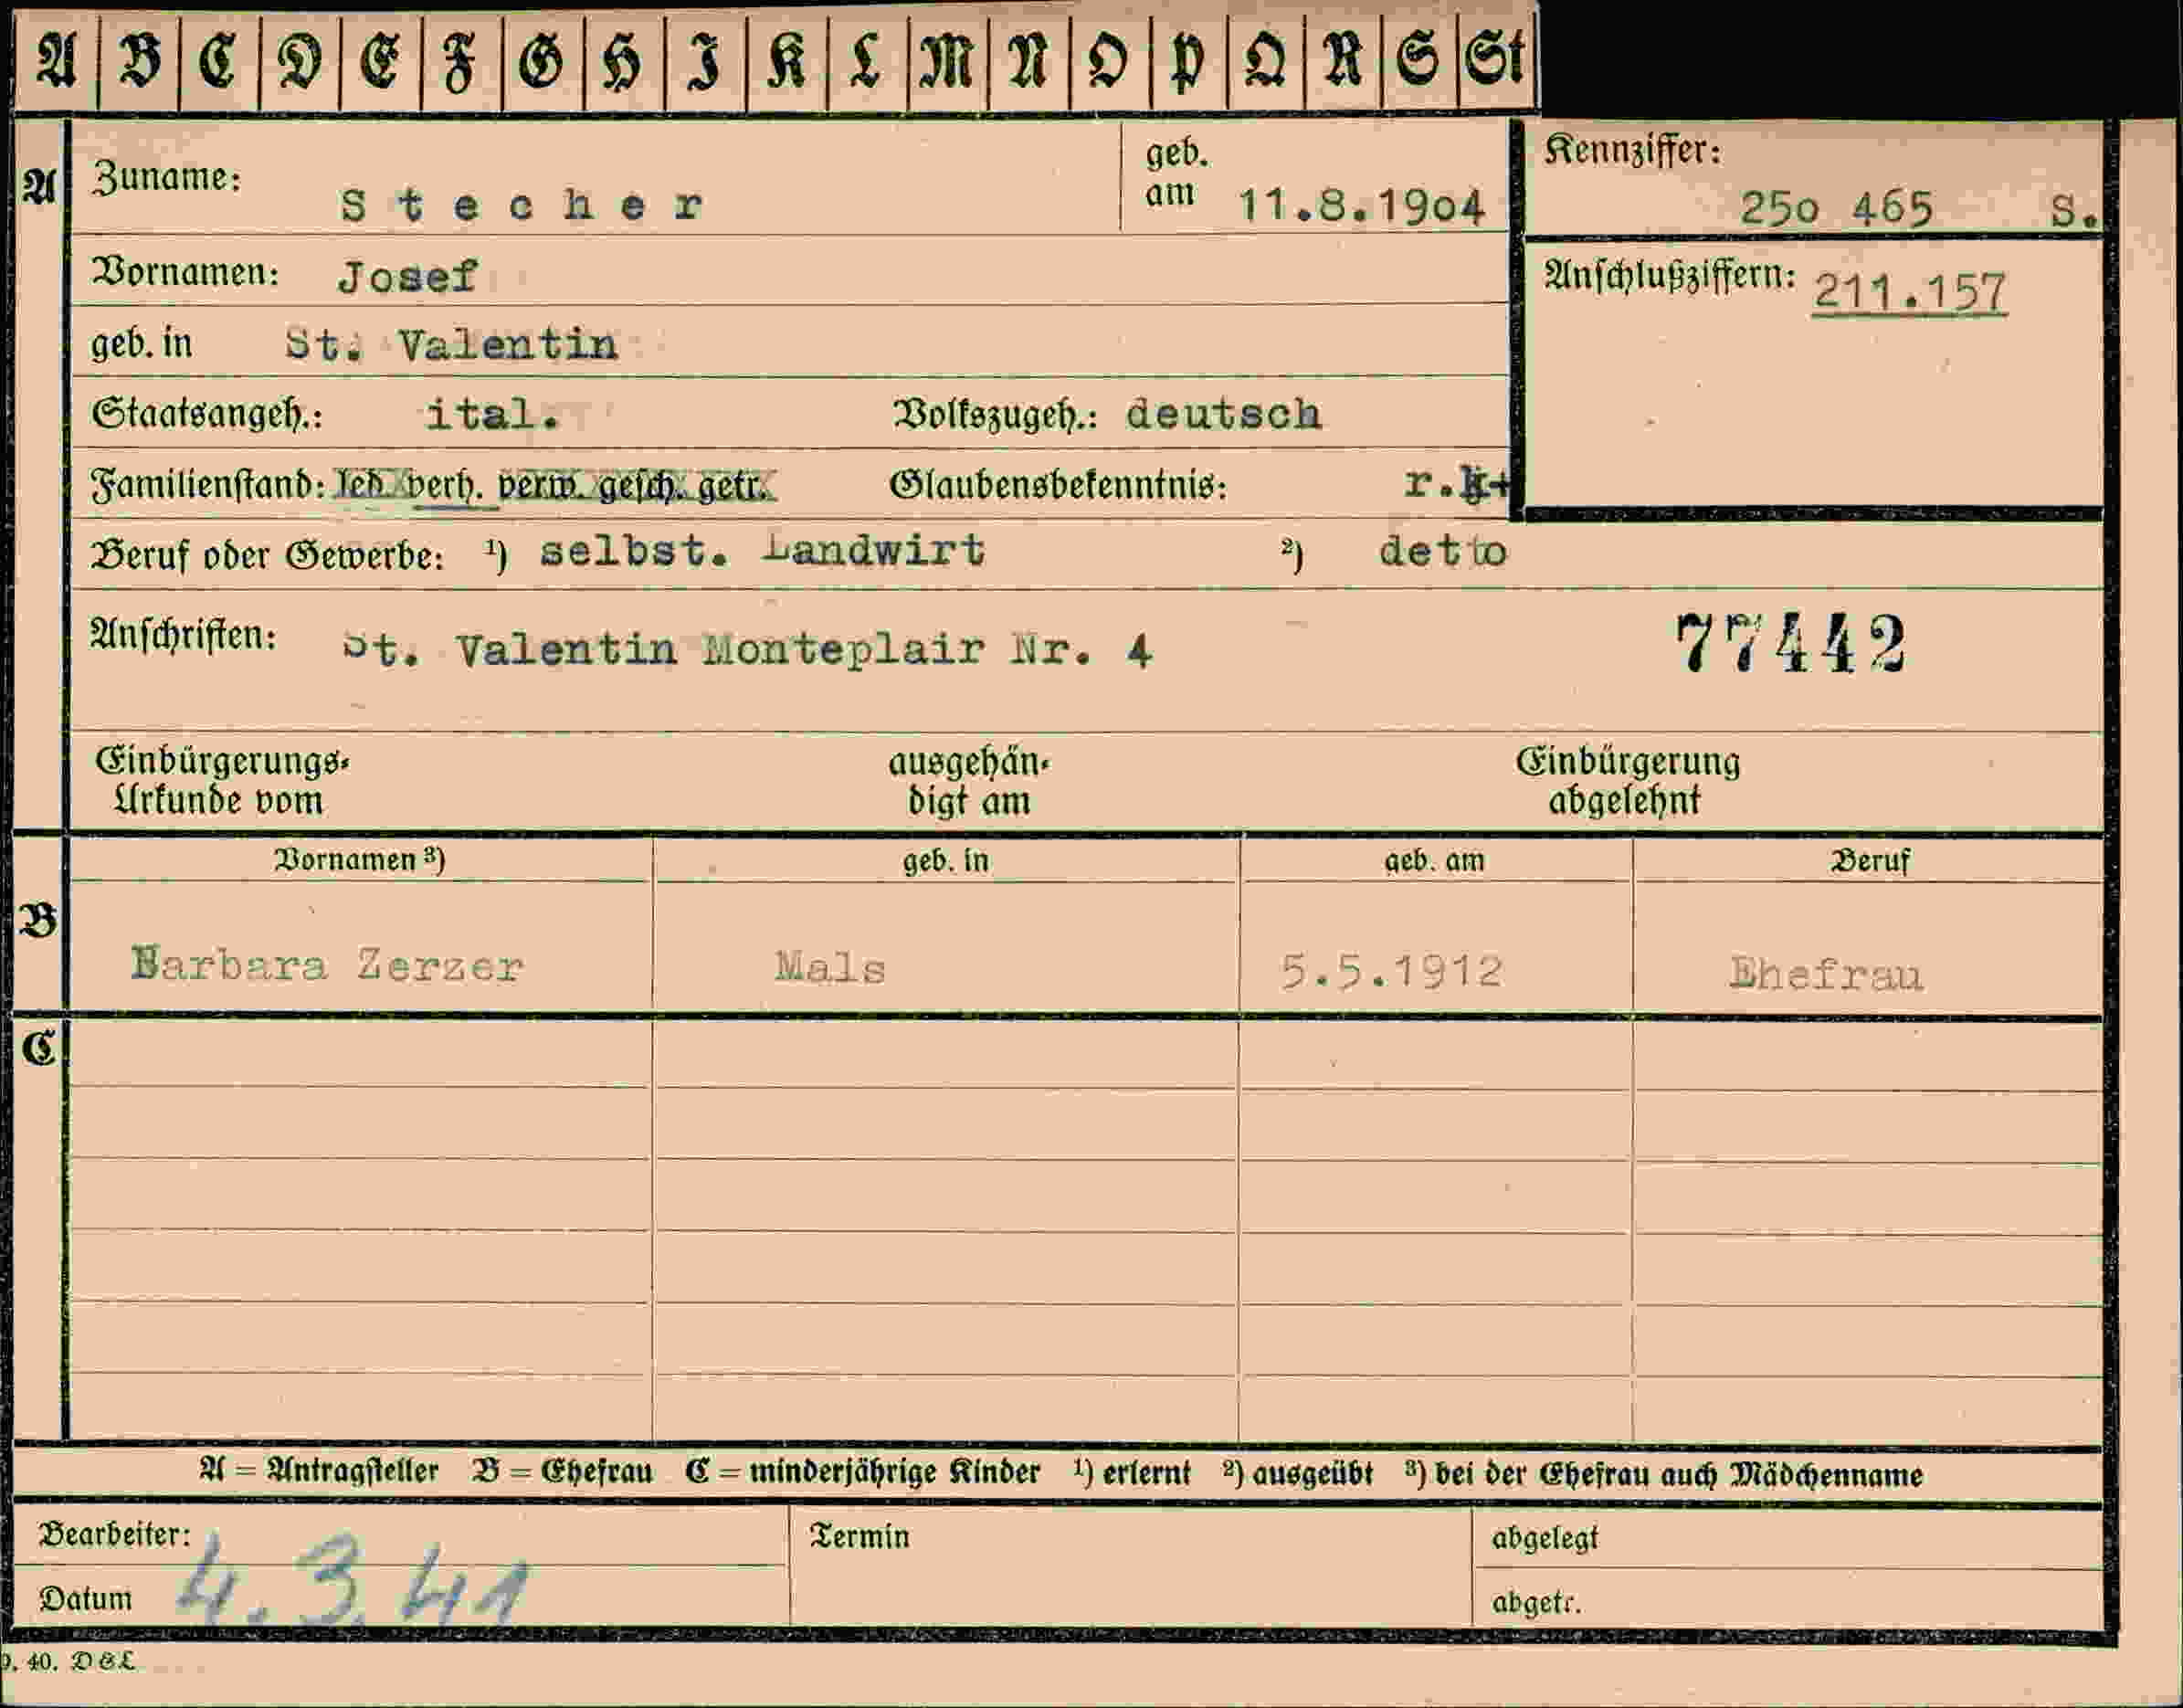 A B C D E F G H I K L M N O P Q R S St
A Zuname: Stecher geb. am 11.8.19o4 Kennziffer: 25o 465 S.
Vornamen: Josef Anschlußziffern: 211.157
geb. in St. Valentin
Staatsangeh.: ital. Volkszugeh.: deutsch
Familienstand: led. verh. verw. gesch. getr. Glaubensbekenntnis: r.k+
Beruf oder Gewerbe: ¹) selbst. Landwirt ²) detto
Anschriften: St. Valentin Monteplair Nr. 4 77442
Einbürgerungs- ausgehän- Einbürgerung
Urkunde vom digt am abgelehnt
Vornamen ³) geb. in geb. am Beruf
B
Barbara Zerzer Mals 5.5.1912 Ehefrau
C
A = Antragsteller B = Ehefrau C = minderjährige Kinder ¹) erlernt ²) ausgeübt ³) bei der Ehefrau auch Mädchenname
Bearbeiter: Termin abgelegt
Datum 4.3.41 abgetr.
9. 40. D&L